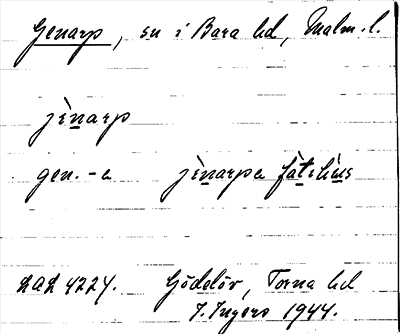 Genarp, sn i Bara hd, Malm. l.
jènarp
gen. -a jènarpa fàtihùs
LAL 4224. Gödelöv, Torna hd
I. Ingers 1944.